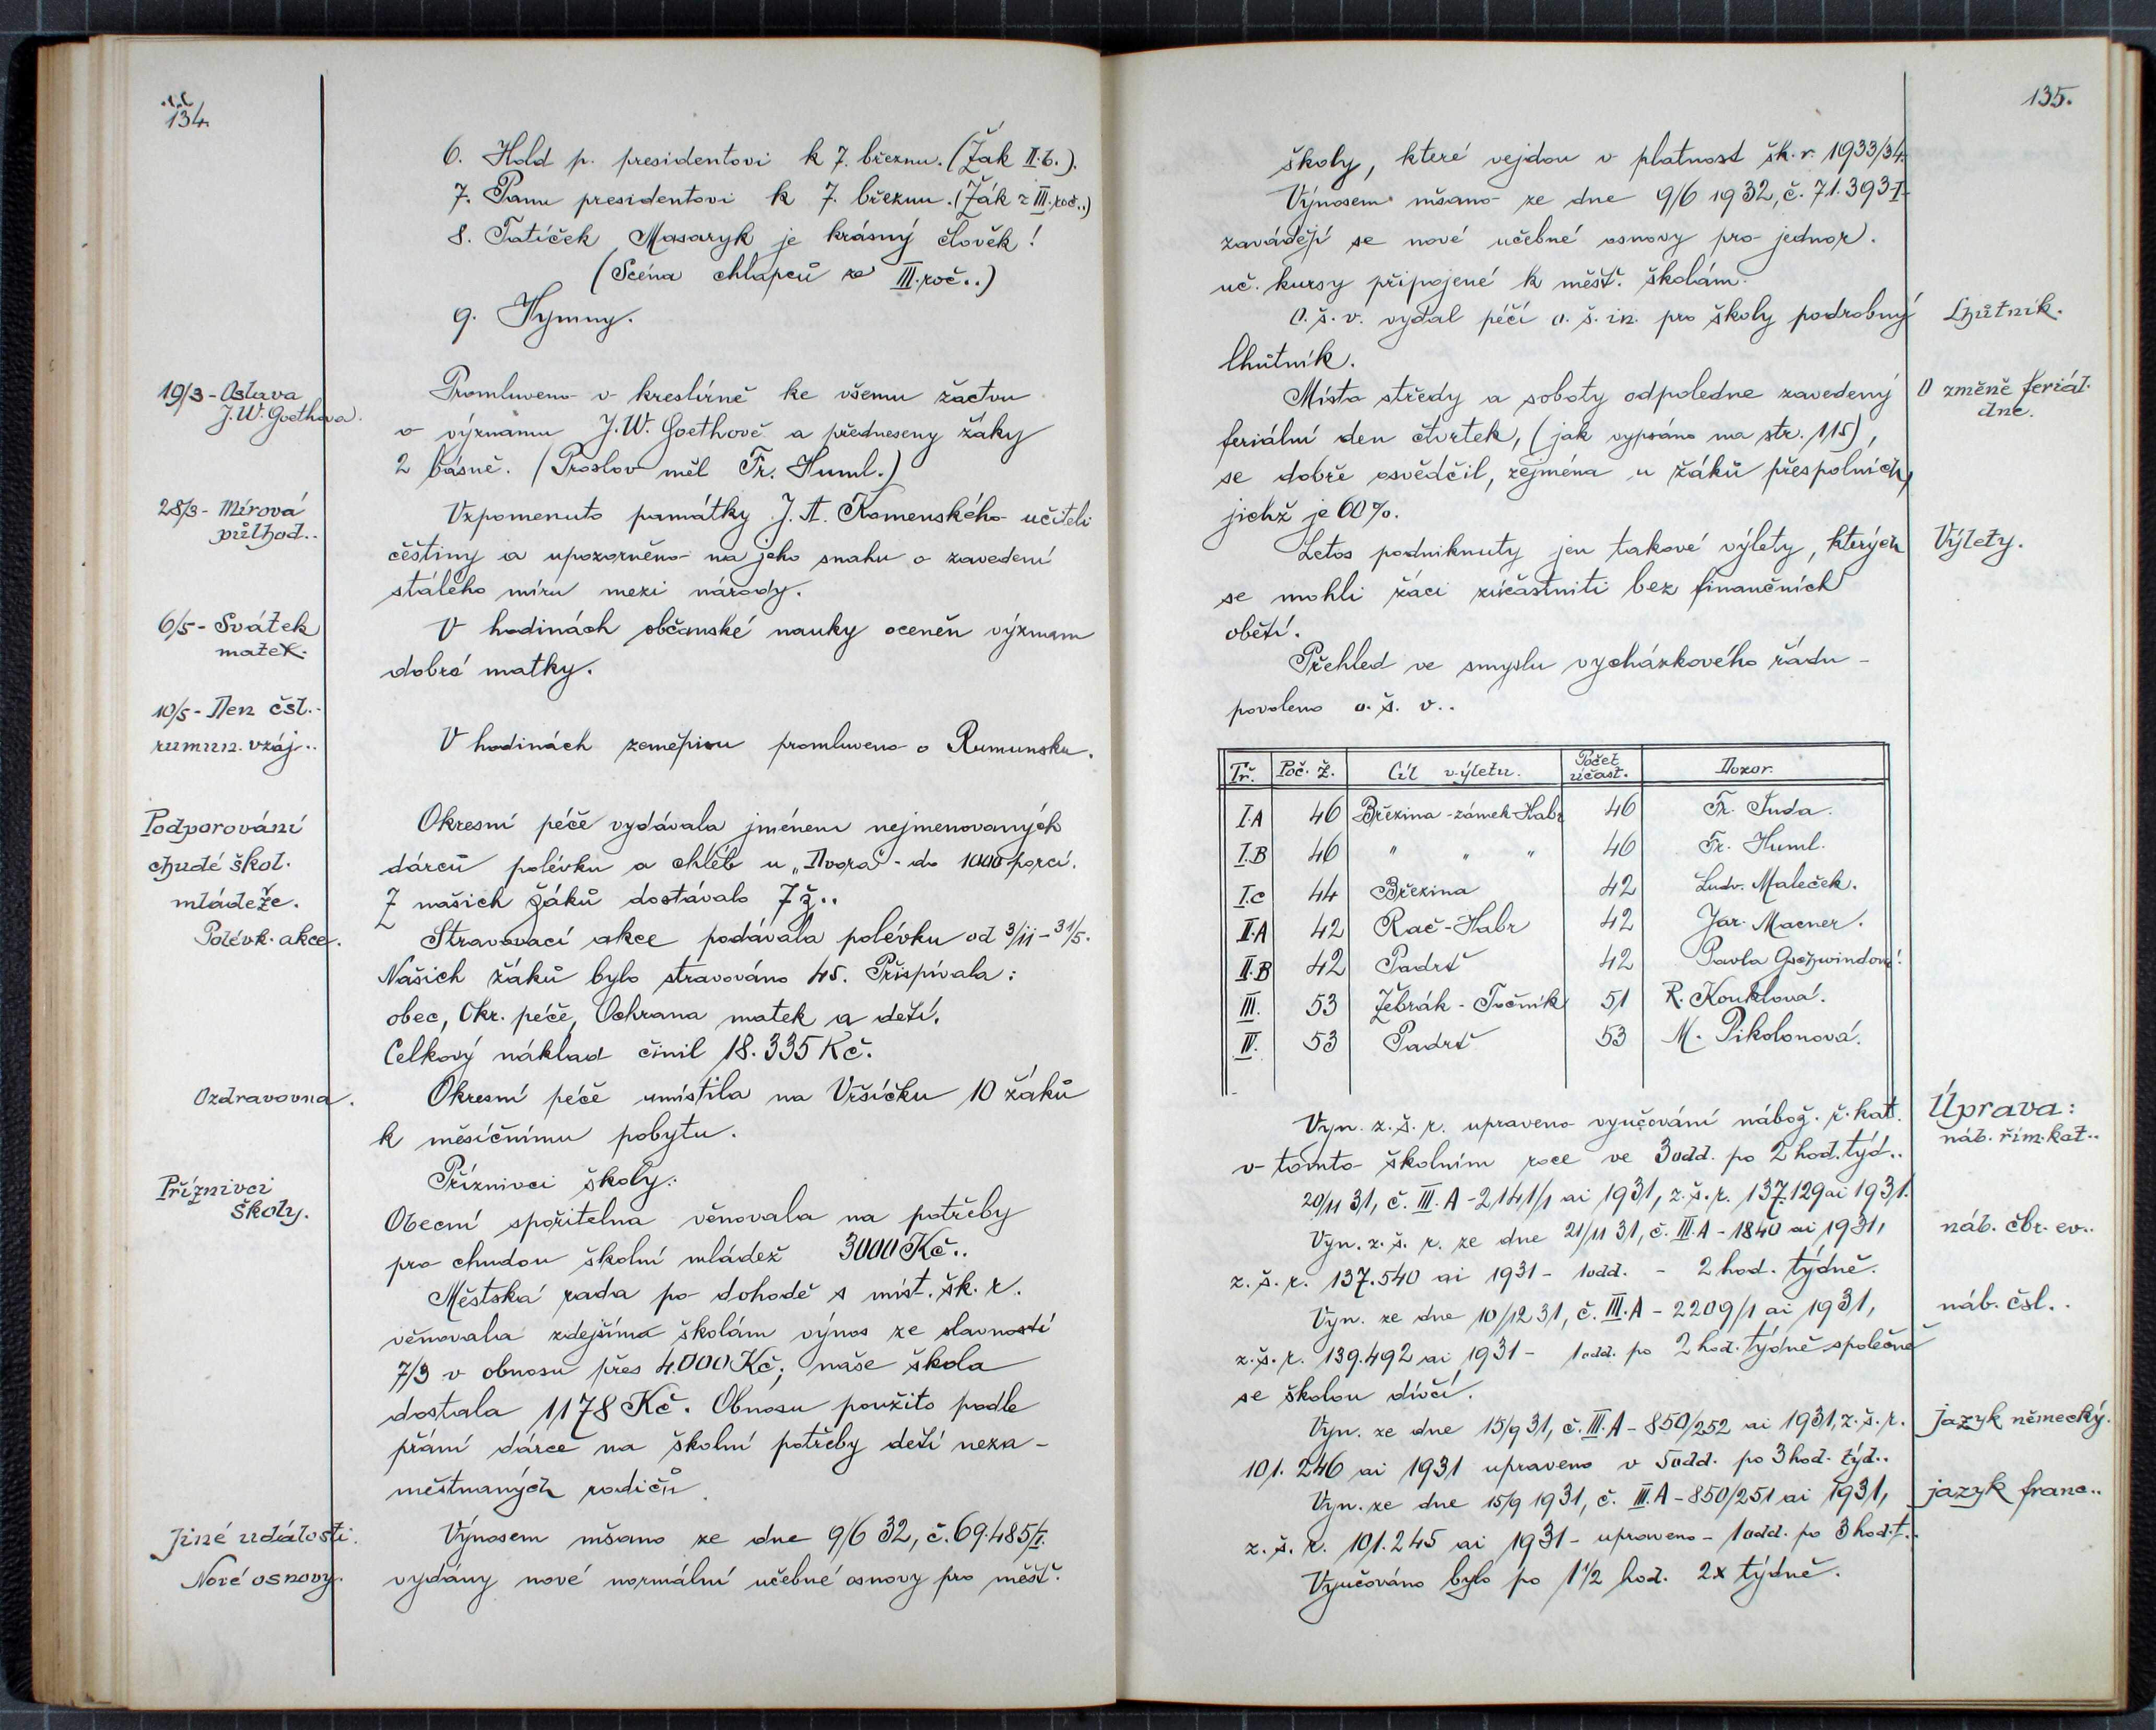 134.
6. Hold p. presidentovi k 7. březnu. (Žák II.b.).
7. Panu presidentovi k 7. březnu. (Žák z III. roč..)
8. Tatíček Masaryk je krásný člověk!
(Scéna chlapců ze III. roč..)
9. Hymny.
19/3 - Oslava
J. W. Goethova.
Promluveno v kreslírně ke všemu žactvu
o významu J. W. Goethově a předneseny žáky
2 básně. (Proslov měl Fr. Huml.)
28/3 - Mírová
půlhod..
Vzpomenuto památky J. A. Komenského učiteli
češtiny a upozorněno na jeho snahu o zavedení
stálého míru mezi národy.
6/5 - Svátek
matek.
V hodinách občanské nauky oceněn význam
dobré matky.
10/5 - Den čsl.-
rumun. vzáj..
V hodinách zeměpisu promluveno o Rumunsku.
Podporování
chudé škol.
mládeže.
Polévk. akce.
Okresní péče vydávala jménem nejmenovaných
dárců polévku a chléb u „Dvora" - do 1000 porcí.
Z našich žáků dostávalo 7 ž..
Stravovací akce podávala polévku od 3/11 - 31/5.
Našich žáků bylo stravováno 45. Přispívala:
obec, Okr. péče, Ochrana matek a dětí.
Celkový náklad činil 18.335 Kč.
Ozdravovna.
Okresní péče umístila na Vršíčku 10 žáků
k měsíčnímu pobytu.
Příznivci
školy.
Příznivci školy:
Obecní spořitelna věnovala na potřeby
pro chudou školní mládež 3000 Kč..
Městská rada po dohodě s míst. šk. r.
věnovala zdejším školám výnos ze slavností
7/3 v obnosu přes 4.000 Kč; naše škola
dostala 1178 Kč. Obnosu použito podle
přání dárce na školní potřeby dětí neza-
městnaných rodičů.
Jiné události.
Nové osnovy.
Výnosem mšano ze dne 9/6 32, č. 69.485/I.
vydány nové normální učebné osnovy pro měšť.
135.
školy, které vejdou v platnost šk. r. 1933/34.
Výnosem mšano ze dne 9/6 1932, č. 71.393-I-
zavádějí se nové učebné osnovy pro jednor.
uč. kursy připojené k měšť. školám.
O. š. v. vydal péčí o. š. in. pro školy podrobný
lhůtník.
Lhůtník.
Místo středy a soboty odpoledne zavedený
feriální den čtvrtek, (jak vypsáno na str. 115),
se dobře osvědčil, zejména u žáků přespolních,
jichž je 60%.
O změně feriál.
dne.
Letos podniknuty jen takové výlety, kterých
se mohli žáci zúčastniti bez finančních
obětí.
Výlety.
Přehled ve smyslu vycházkového řádu -
povoleno o. š. v..
Tř. Poč. ž. Cíl výletu. Počet účast. Dozor.
I.A 46 Březina - zámek - Habr 46 Fr. Tuda.
I.B 46 " " " 46 Fr. Huml.
I.C 44 Březina 42 Ludv. Maleček.
II.A 42 Rač - Habr 42 Jar. Macner.
II.B 42 Padrť 42 Pavla Gschwindová.
III. 53 Žebrák - Točník 51 R. Kouklová.
IV. 53 Padrť 53 M. Pikolonová.
Úprava:
náb. řím. kat..
Vyn. z. š. r. upraveno vyučování nábož. ř. kat.
v tomto školním roce ve 3 odd. po 2 hod. týd..
20/11 31, č. III. A - 2141/1 ai 1931, z. š. r. 137.129 ai 1931.
Vyn. z. š. r. ze dne 21/11 31, č. III. A - 1840 ai 1931,
z. š. r. 137.540 ai 1931 - 1 odd. - 2 hod. týdně.
náb. čbr. ev..
Vyn. ze dne 10/12 31, č. III. A - 2209/1 ai 1931,
z. š. r. 139.492 ai 1931 - 1 odd. po 2 hod. týdně společně
se školou dívčí.
náb. čsl..
Vyn. ze dne 15/9 31, č. III. A - 850/252 ai 1931, z. š. r.
101.246 ai 1931 upraveno v 5 odd. po 3 hod. týd..
jazyk německý.
Vyn. ze dne 15/9 1931, č. III. A - 850/251 ai 1931,
z. š. r. 101.245 ai 1931 - upraveno - 1 odd. po 3 hod. t..
jazyk franc..
Vyučováno bylo po 1 1/2 hod. 2x týdně.